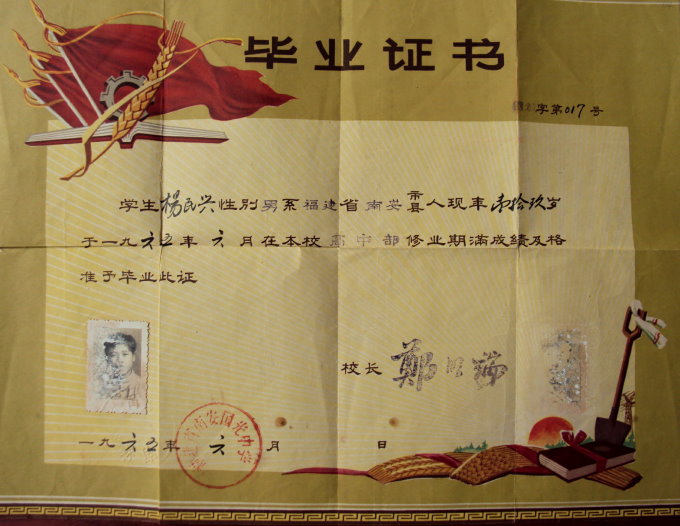 毕业证书
字第017号
学生杨民兴性别男系福建省南安市县人现年壹拾玖岁
于一九六五年六月在本校高中部修业期满成绩及格
准予毕业此证
校长 郑
一九六五年六月 日
福建省南安国光中学